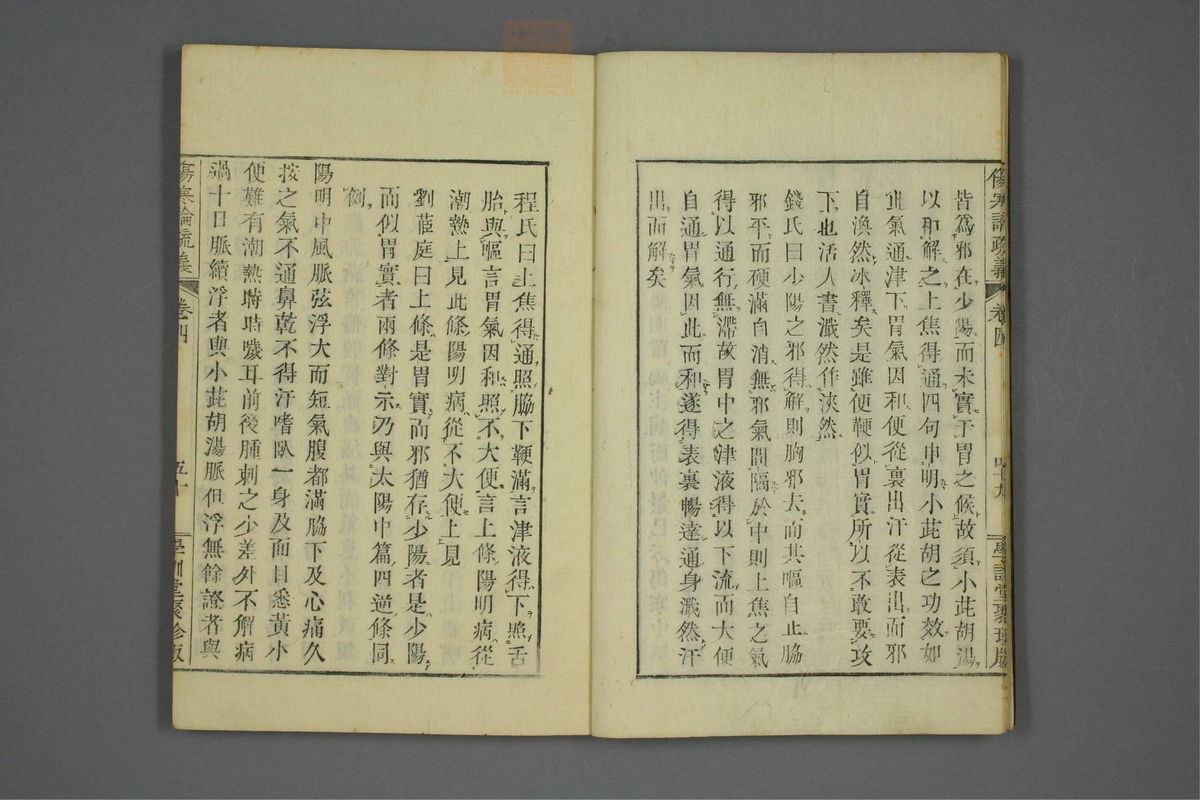 傷寒論疏義
卷四
四十九
學訓堂聚珍版
皆爲邪在少陽而未實于胃之候故須小茈胡湯
以和解之上焦得通四句申明小茈胡之功效如
此氣通津下胃氣因和便從裏出汗從表出而邪
自渙然冰釋矣是雖便鞕似胃實所以不敢要攻
下也活人書濈然作浹然
錢氏曰少陽之邪得解則胸邪去而其嘔自止脇
邪平而硬滿自消無邪氣間隔於中則上焦之氣
得以通行無滯故胃中之津液得以下流而大便
自通胃氣因此而和遂得表裏暢達通身濈然汗
出而解矣
程氏曰上焦得通照脇下鞕滿言津液得下照舌
胎與嘔言胃氣因和照不大便言上條陽明病從
潮熱上見此條陽明病從不大便上見
劉茝庭曰上條是胃實而邪猶存少陽者是少陽
而似胃實者兩條對示乃與太陽中篇四逆條同
例
陽明中風脈弦浮大而短氣腹都滿脇下及心痛久
按之氣不通鼻乾不得汗嗜臥一身及面目悉黃小
便難有潮熱時時噦耳前後腫刺之少差外不解病
過十日脈續浮者與小茈胡湯脈但浮無餘證者與
傷寒論疏義
卷四
五十
學訓堂聚珍版